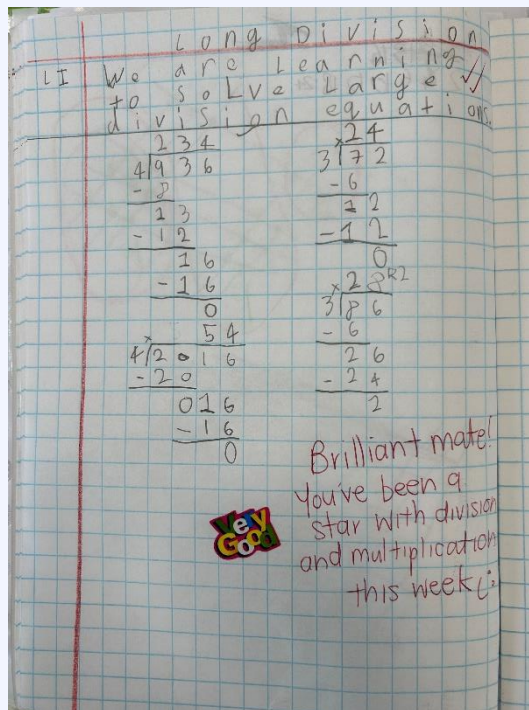 Long Division
LI We are Learning
to soLve Large
division equations.
234
4)936
- 8
13
- 12
16
- 16
0
x 54
4)2016
- 20
016
- 16
0
x 24
3)72
- 6
12
- 12
0
x 28R2
3)86
- 6
26
- 24
2
Very
Good
Brilliant mate!
You've been a
star with division
and multiplication
this week (: